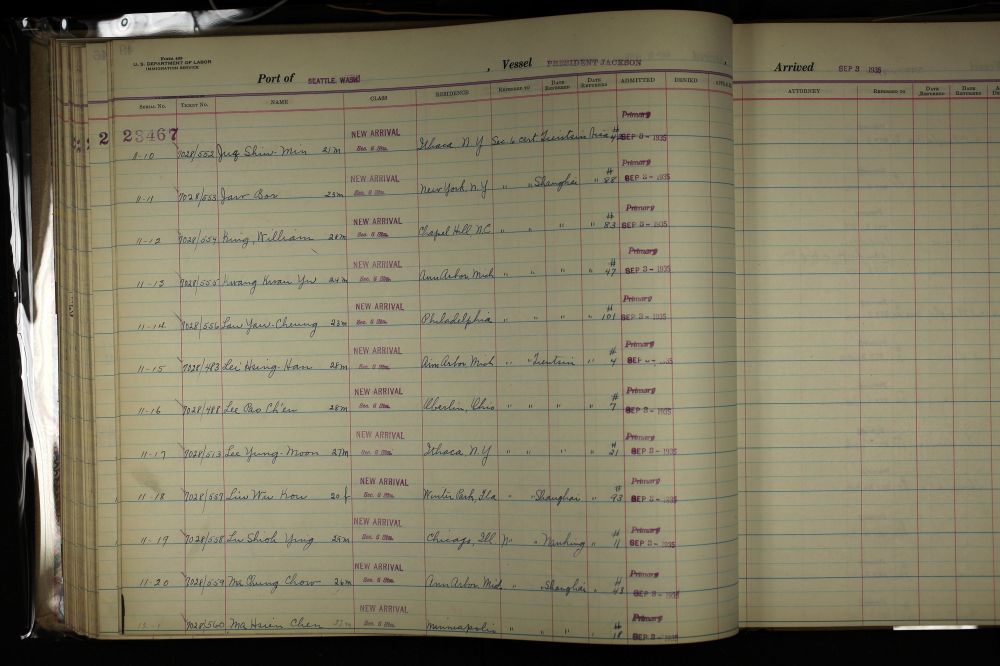 Form 430
U. S. DEPARTMENT OF LABOR
IMMIGRATION SERVICE
Port of SEATTLE, WASH. , Vessel PRESIDENT JACKSON . Arrived SEP 3 1935
SERIAL NO. TICKET NO. NAME CLASS RESIDENCE REFERRED TO DATE REFERRED DATE RETURNED ADMITTED DENIED ATTORNEY REFERRED TO DATE REFERRED DATE RETURNED
2 23467 NEW ARRIVAL Primary
11-10 7028/552 Shiu-Min 21 m Sec. 6 Stu. Ithaca N.Y Sec 6 cert Tientsin Visa # SEP 3 - 1935
NEW ARRIVAL Primary
11-11 7028/553 Jaw Bor 23 m Sec. 6 Stu. New York, N.Y " " Shanghai " # 88 SEP 3 - 1935
NEW ARRIVAL Primary
11-12 7028/554 King, William 28 m Sec. 6 Stu. Chapel Hill N.C. " " " " # 83 SEP 3 - 1935
NEW ARRIVAL Primary
11-13 7028/555 Kwang Kwan Yu 24 m Sec. 6 Stu. Ann Arbor Mich " " " " # 47 SEP 3 - 1935
NEW ARRIVAL Primary
11-14 7028/556 Law Yaw-Cheung 23 m Sec. 6 Stu. Philadelphia " " " " # 101 SEP 3 - 1935
NEW ARRIVAL Primary
11-15 7028/483 Lei Hsing-Han 28 m Sec. 6 Stu. Ann Arbor Mich " " Tientsin " # 4 SEP 3 - 1935
NEW ARRIVAL Primary
11-16 7028/488 Lee Pao Ch'en 28 m Sec. 6 Stu. Oberlin, Ohio " " " " # 7 SEP 3 - 1935
NEW ARRIVAL Primary
11-17 7028/513 Lee Yung-Moon 27 m Sec. 6 Stu. Ithaca, N.Y " " " " # 21 SEP 3 - 1935
NEW ARRIVAL Primary
11-18 7028/557 Liu Wu Kou 20 f Sec. 6 Stu. Winter Park, Fla " " Shanghai " # 93 SEP 3 - 1935
NEW ARRIVAL Primary
11-19 7028/558 Lu Shioh Ying 25 m Sec. 6 Stu. Chicago, Ill " " Nanking " # 11 SEP 3 - 1935
NEW ARRIVAL Primary
11-20 7028/559 Ma Chung Chow 26 m Sec. 6 Stu. Ann Arbor Mich. " " Shanghai " # 43 SEP 3 - 1935
NEW ARRIVAL Primary
12-1 7028/560 Ma Hsien Chen m Sec. 6 Stu. Minneapolis " " " " # 18 SEP 3 - 1935